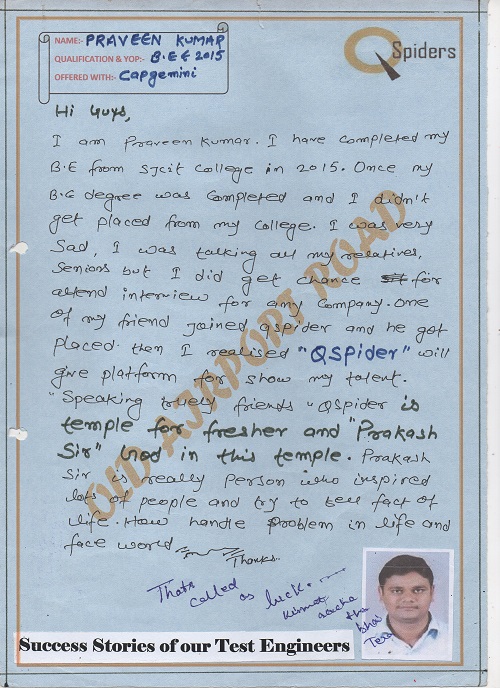 NAME:- PRAVEEN KUMAR
QUALIFICATION & YOP:- B.E E 2015
OFFERED WITH:- Capgemini
Q Spiders
Hi Guys,
I am Praveen Kumar. I have completed my
B.E from SJCIT College in 2015. Once my
B.E degree was completed and I didn't
get placed from my College. I was very
Sad, I was talking all my relatives,
Seniors but I did get chance for
attend interview for any Company. One
of my friend joined qspider and he got
placed. then I realised "QSpider" will
give platform for show my talent.
"Speaking truely friends "QSpider is
temple for fresher and "Prakash
Sir" God in this temple. Prakash
Sir is really Person who inspired
lots of people and try to tell fact of
life. How handle Problem in life and
face world
Thanks..
Thats called as luck.
kismat aacha tha bhai Tera
OLD AIRPORT ROAD
Success Stories of our Test Engineers